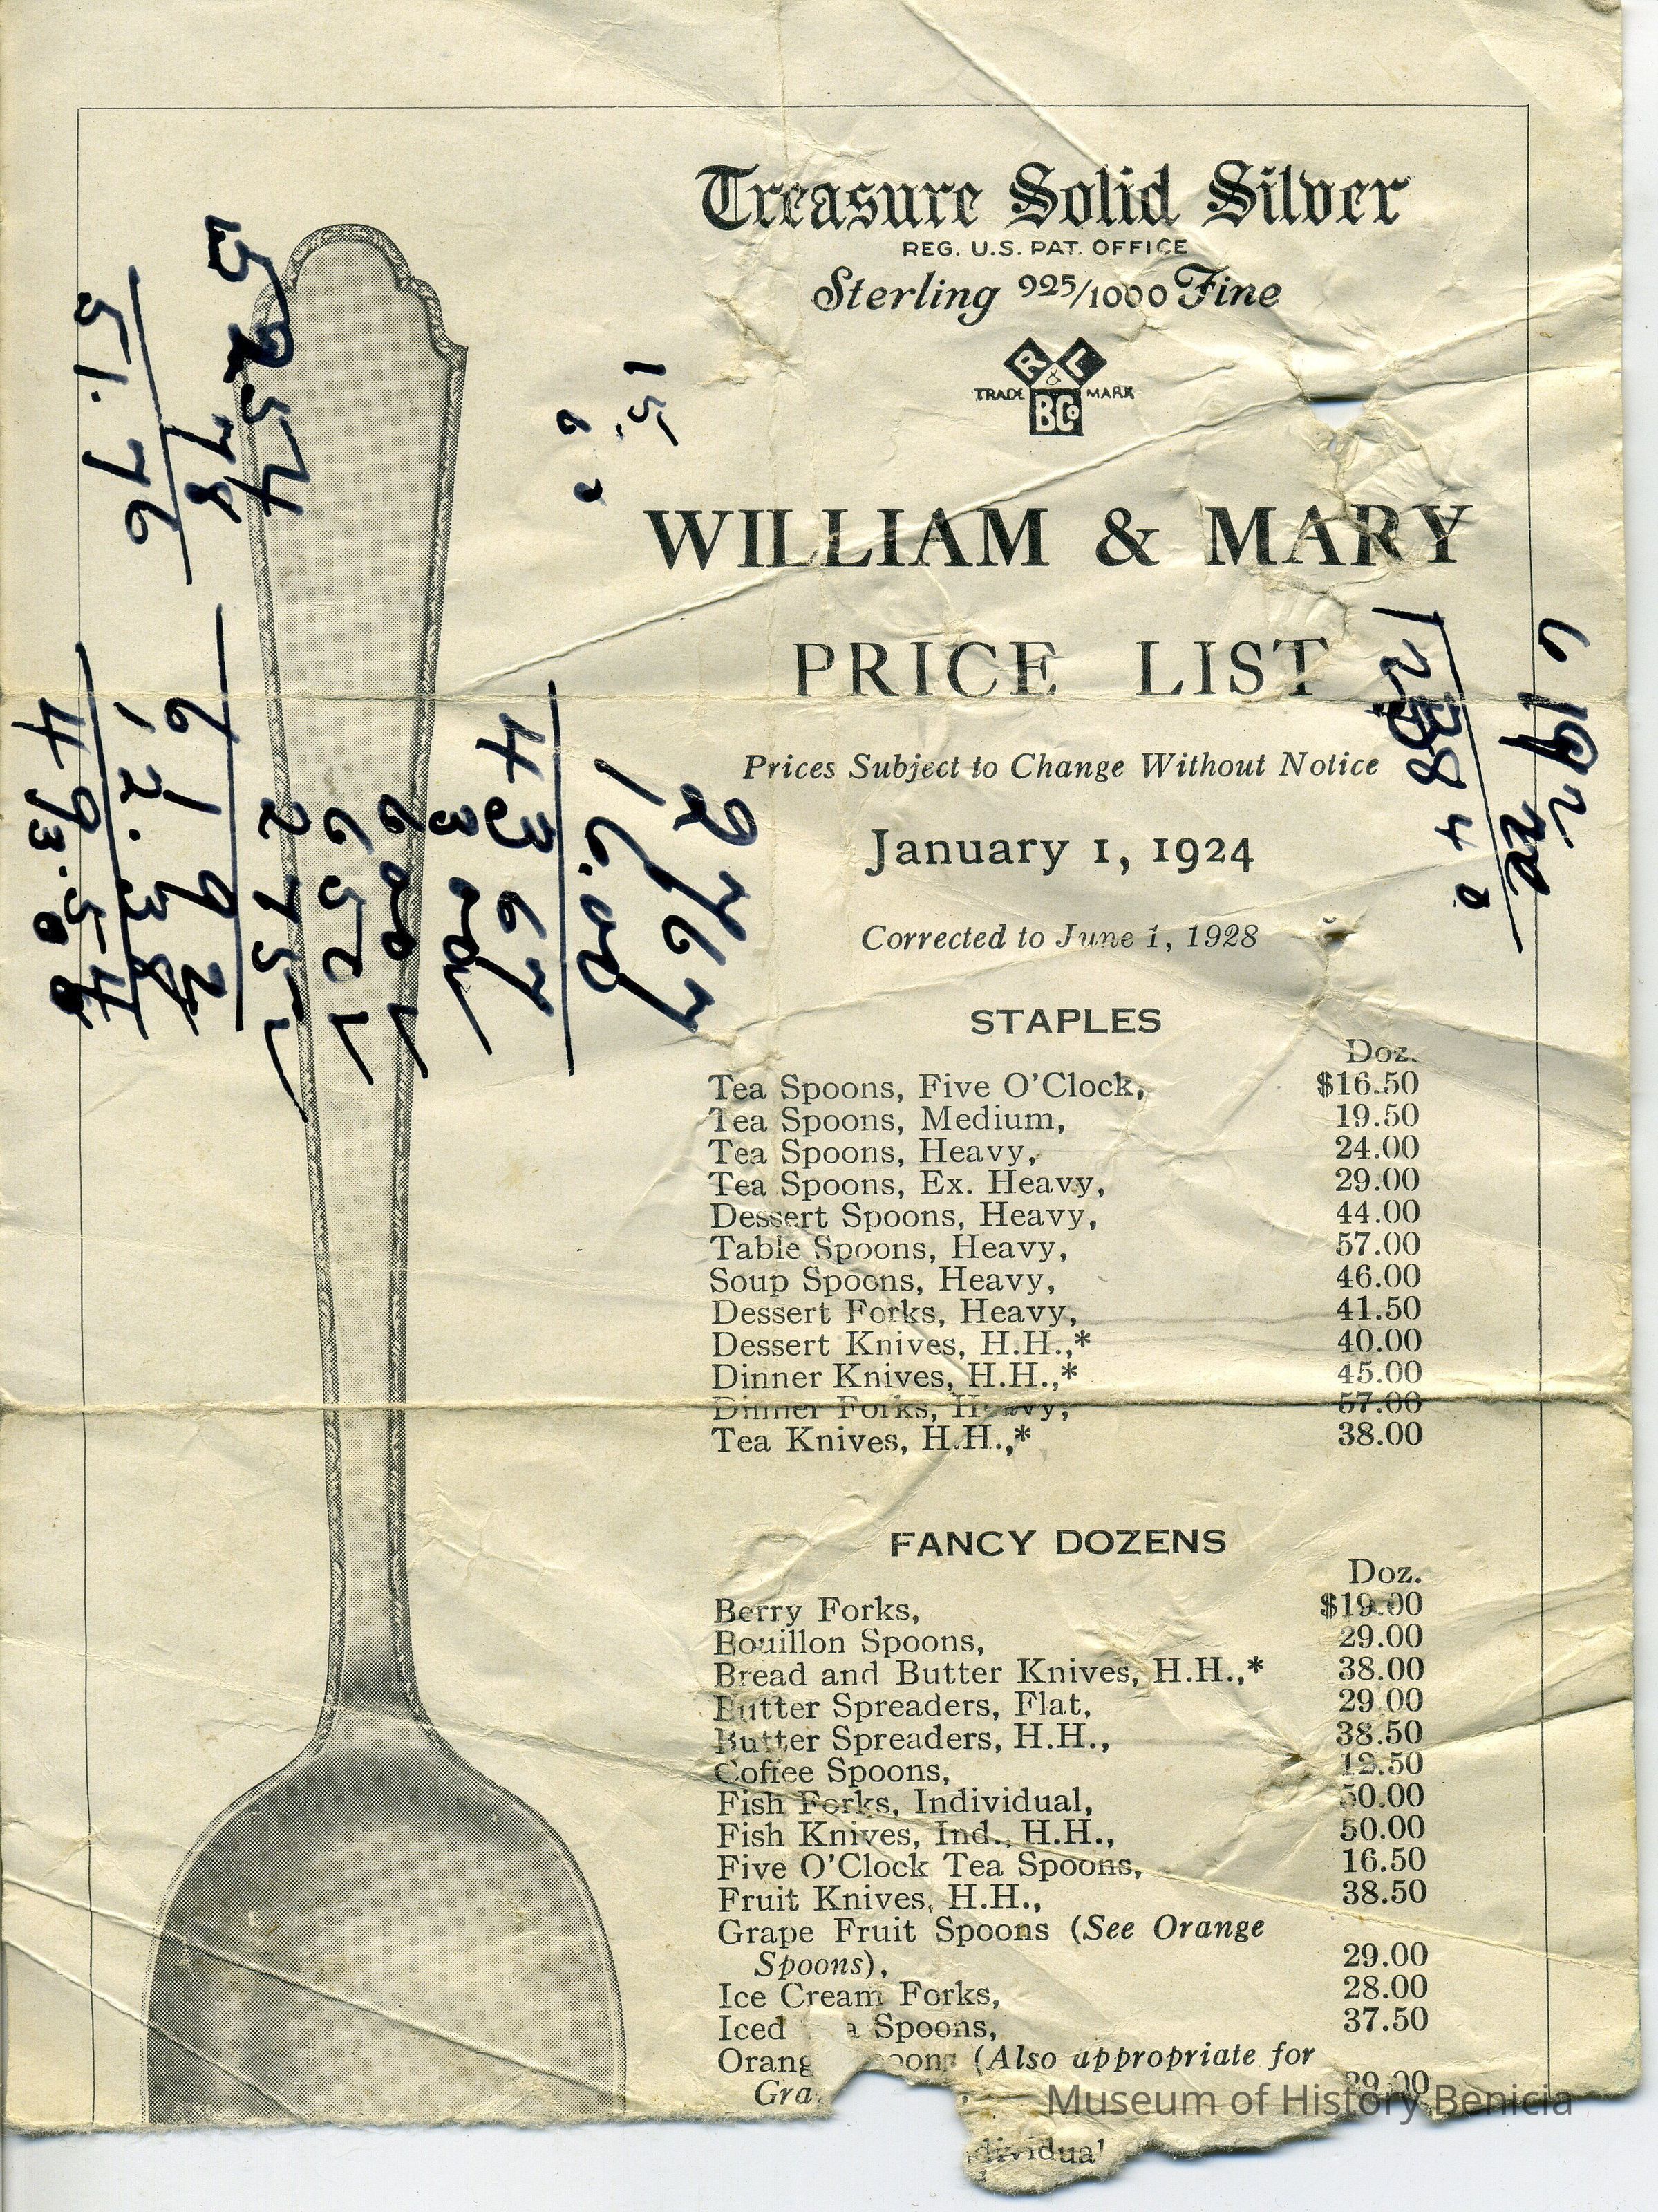 Treasure Solid Silver
REG. U.S. PAT. OFFICE
Sterling 925/1000 Fine
R & L
TRADE BCo MARK
WILLIAM & MARY
PRICE LIST
Prices Subject to Change Without Notice
January 1, 1924
Corrected to June 1, 1928
STAPLES
Doz.
Tea Spoons, Five O'Clock, $16.50
Tea Spoons, Medium, 19.50
Tea Spoons, Heavy, 24.00
Tea Spoons, Ex. Heavy, 29.00
Dessert Spoons, Heavy, 44.00
Table Spoons, Heavy, 57.00
Soup Spoons, Heavy, 46.00
Dessert Forks, Heavy, 41.50
Dessert Knives, H.H.,* 40.00
Dinner Knives, H.H.,* 45.00
Dinner Forks, Heavy, 57.00
Tea Knives, H.H.,* 38.00
FANCY DOZENS
Doz.
Berry Forks, $19.00
Bouillon Spoons, 29.00
Bread and Butter Knives, H.H.,* 38.00
Butter Spreaders, Flat, 29.00
Butter Spreaders, H.H., 38.50
Coffee Spoons, 12.50
Fish Forks, Individual, 50.00
Fish Knives, Ind., H.H., 50.00
Five O'Clock Tea Spoons, 16.50
Fruit Knives, H.H., 38.50
Grape Fruit Spoons (See Orange
Spoons), 29.00
Ice Cream Forks, 28.00
Iced a Spoons, 37.50
Orang oons (Also appropriate for
Gra 29.00
dividual
Museum of History Benicia
5254
78
51.76
6192
12.38
493.54